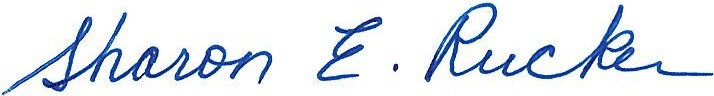 Sharon E. Rucker